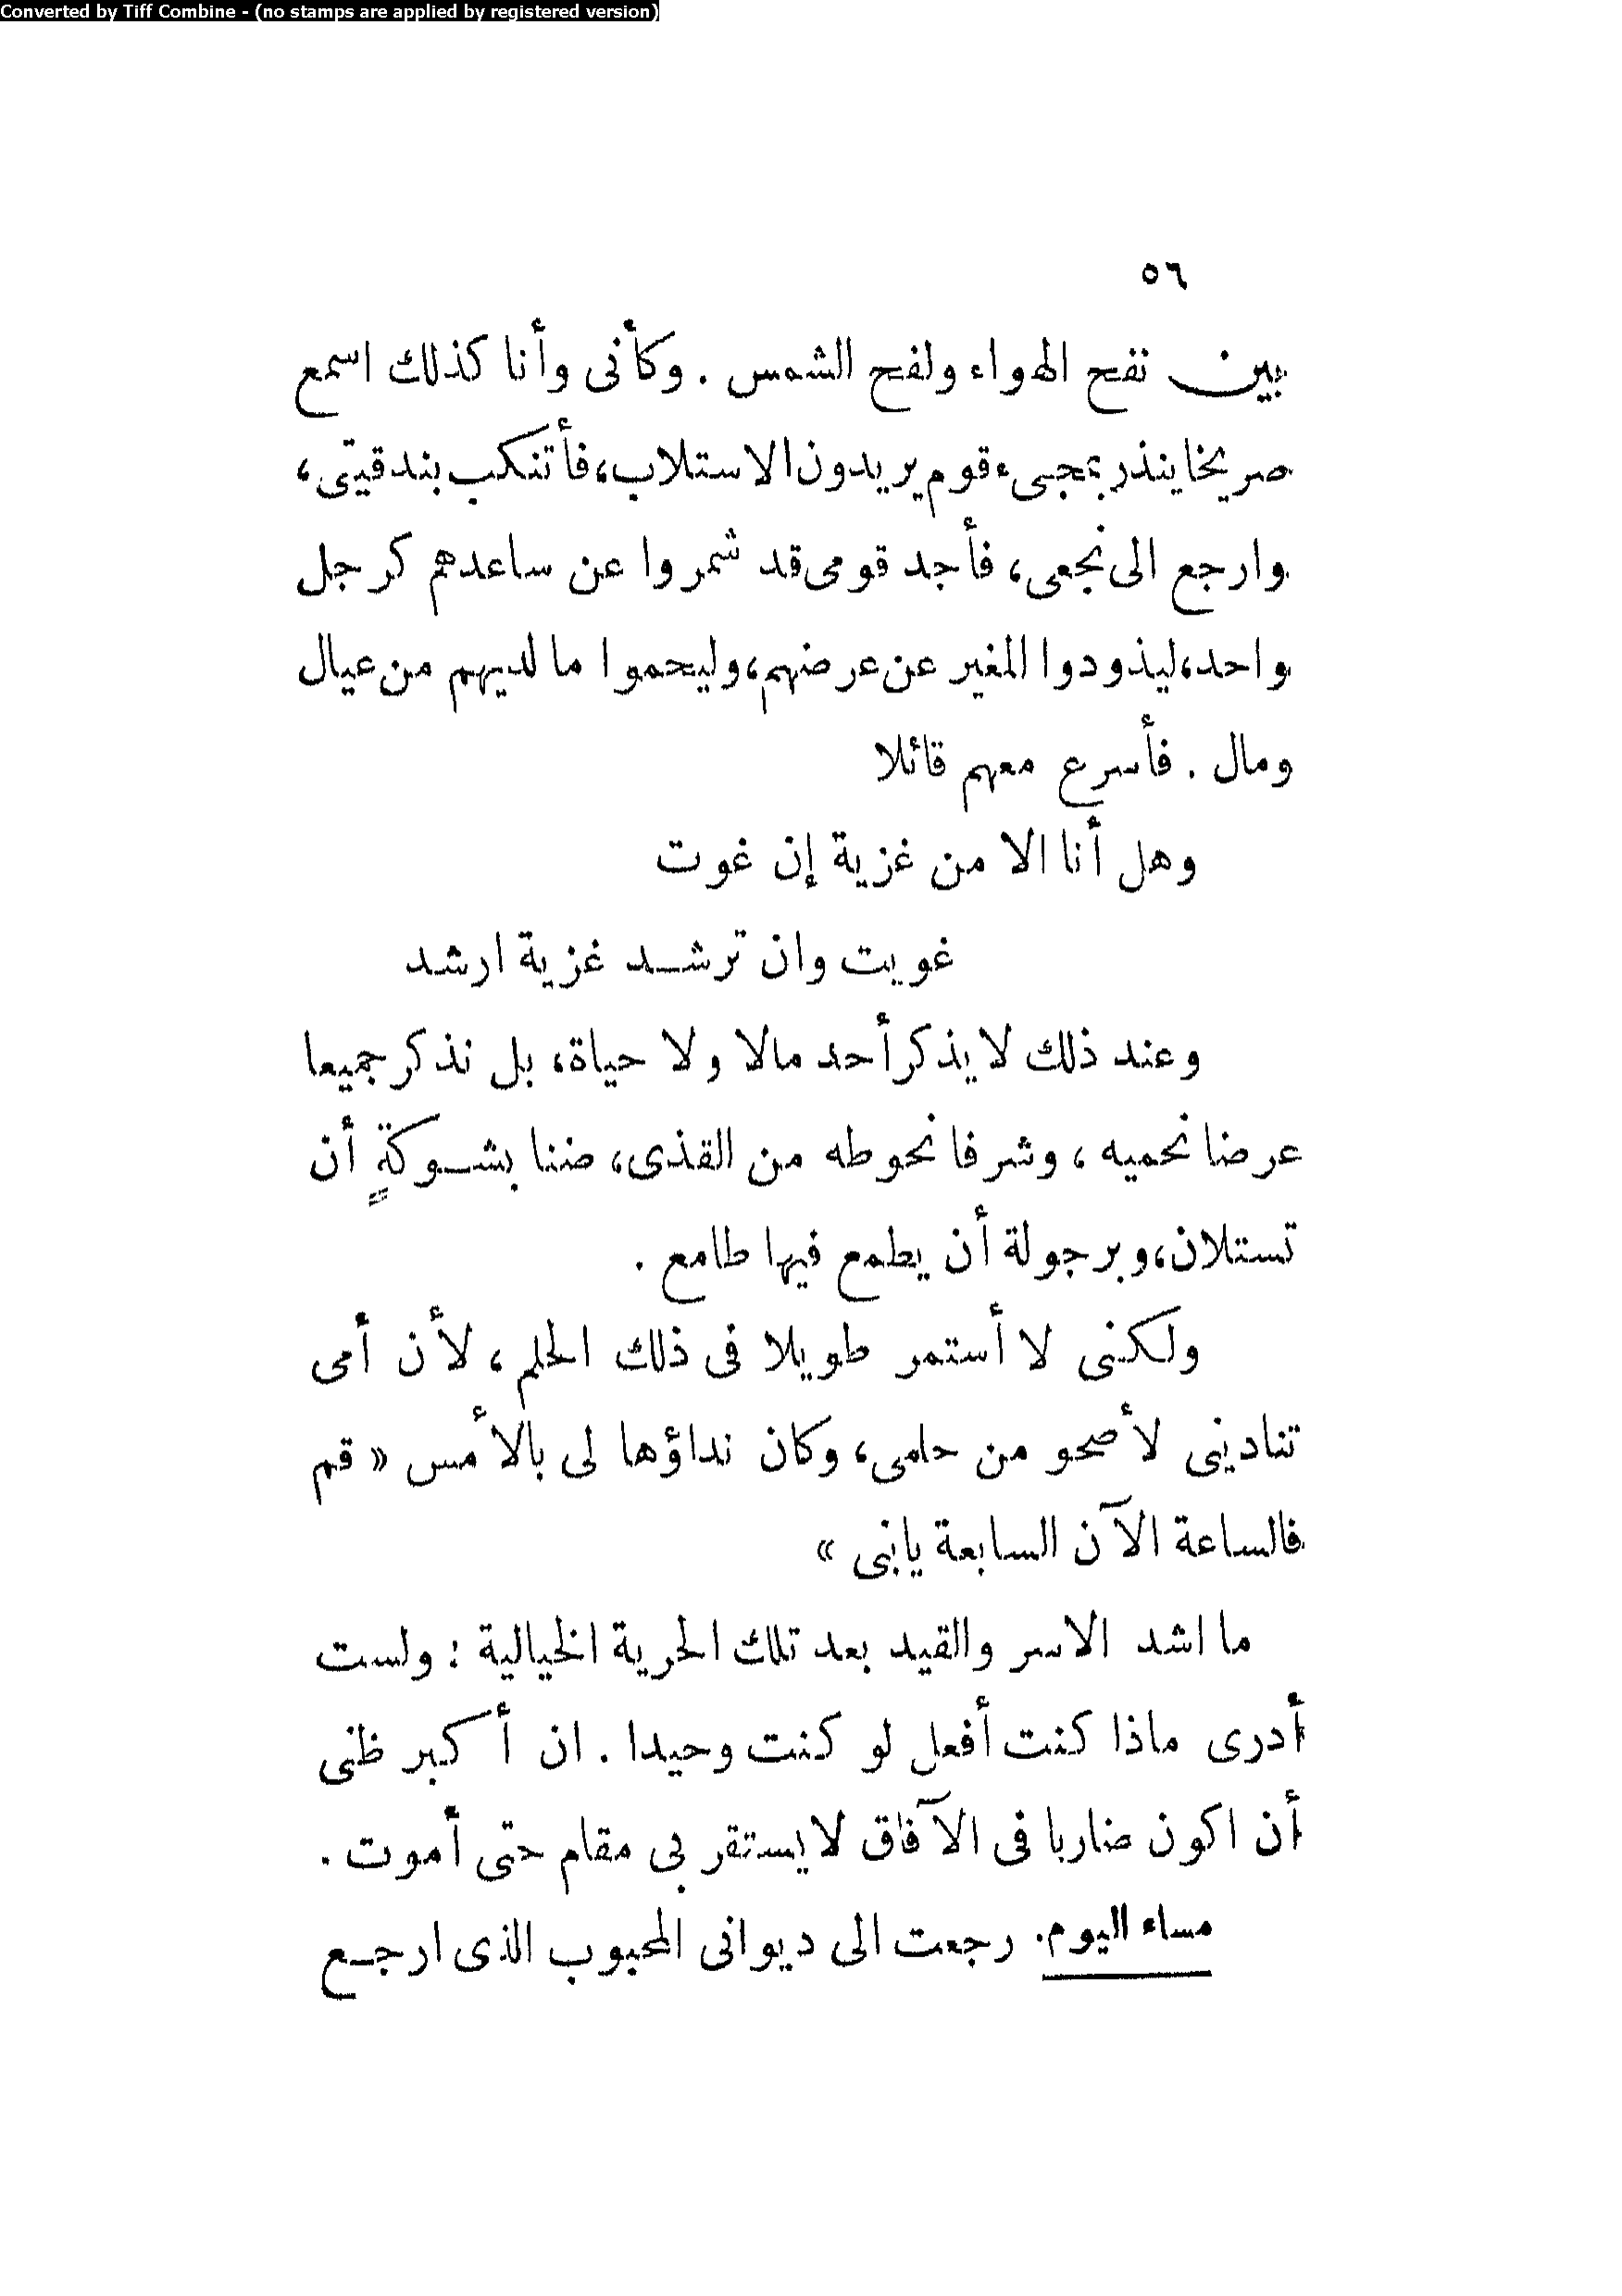 Converted by Tiff Combine - (no stamps are applied by registered version)
٥٦
بين نفح الهواء ولفح الشمس . وكأنى وأنا كذلك اسمع
صريخا ينذر بمجىء قوم يريدون الاستلاب، فأتنكب بندقيتى،
وارجع الى نجعى، فأجد قومى قد شمروا عن ساعدهم كرجل
واحد، ليذودوا المغير عن عرضهم، وليحموا ما لديهم من عيال
ومال . فأسرع معهم قائلا
وهل أنا الا من غزية إن غوت
غويت وان ترشد غزية ارشد
وعند ذلك لا يذكر أحد مالا ولا حياة، بل نذكر جميعا
عرضا نحميه ، وشرفا نحوطه من القذى، ضننا بشوكةٍ أن
تستلان، وبرجولة أن يطمع فيها طامع .
ولكنى لا أستمر طويلا فى ذلك الحلم ، لأن أمى
تنادينى لأصحو من حلمى، وكان نداؤها لى بالأمس « قم
فالساعة الآن السابعة يابنى »
ما اشد الاسر والقيد بعد تلك الحرية الخيالية : ولست
أدرى ماذا كنت أفعل لو كنت وحيدا . ان أكبر ظنى
أن اكون ضاربا فى الآفاق لا يستقر بى مقام حتى أموت .
مساء اليوم. رجعت الى ديوانى المحبوب الذى ارجع